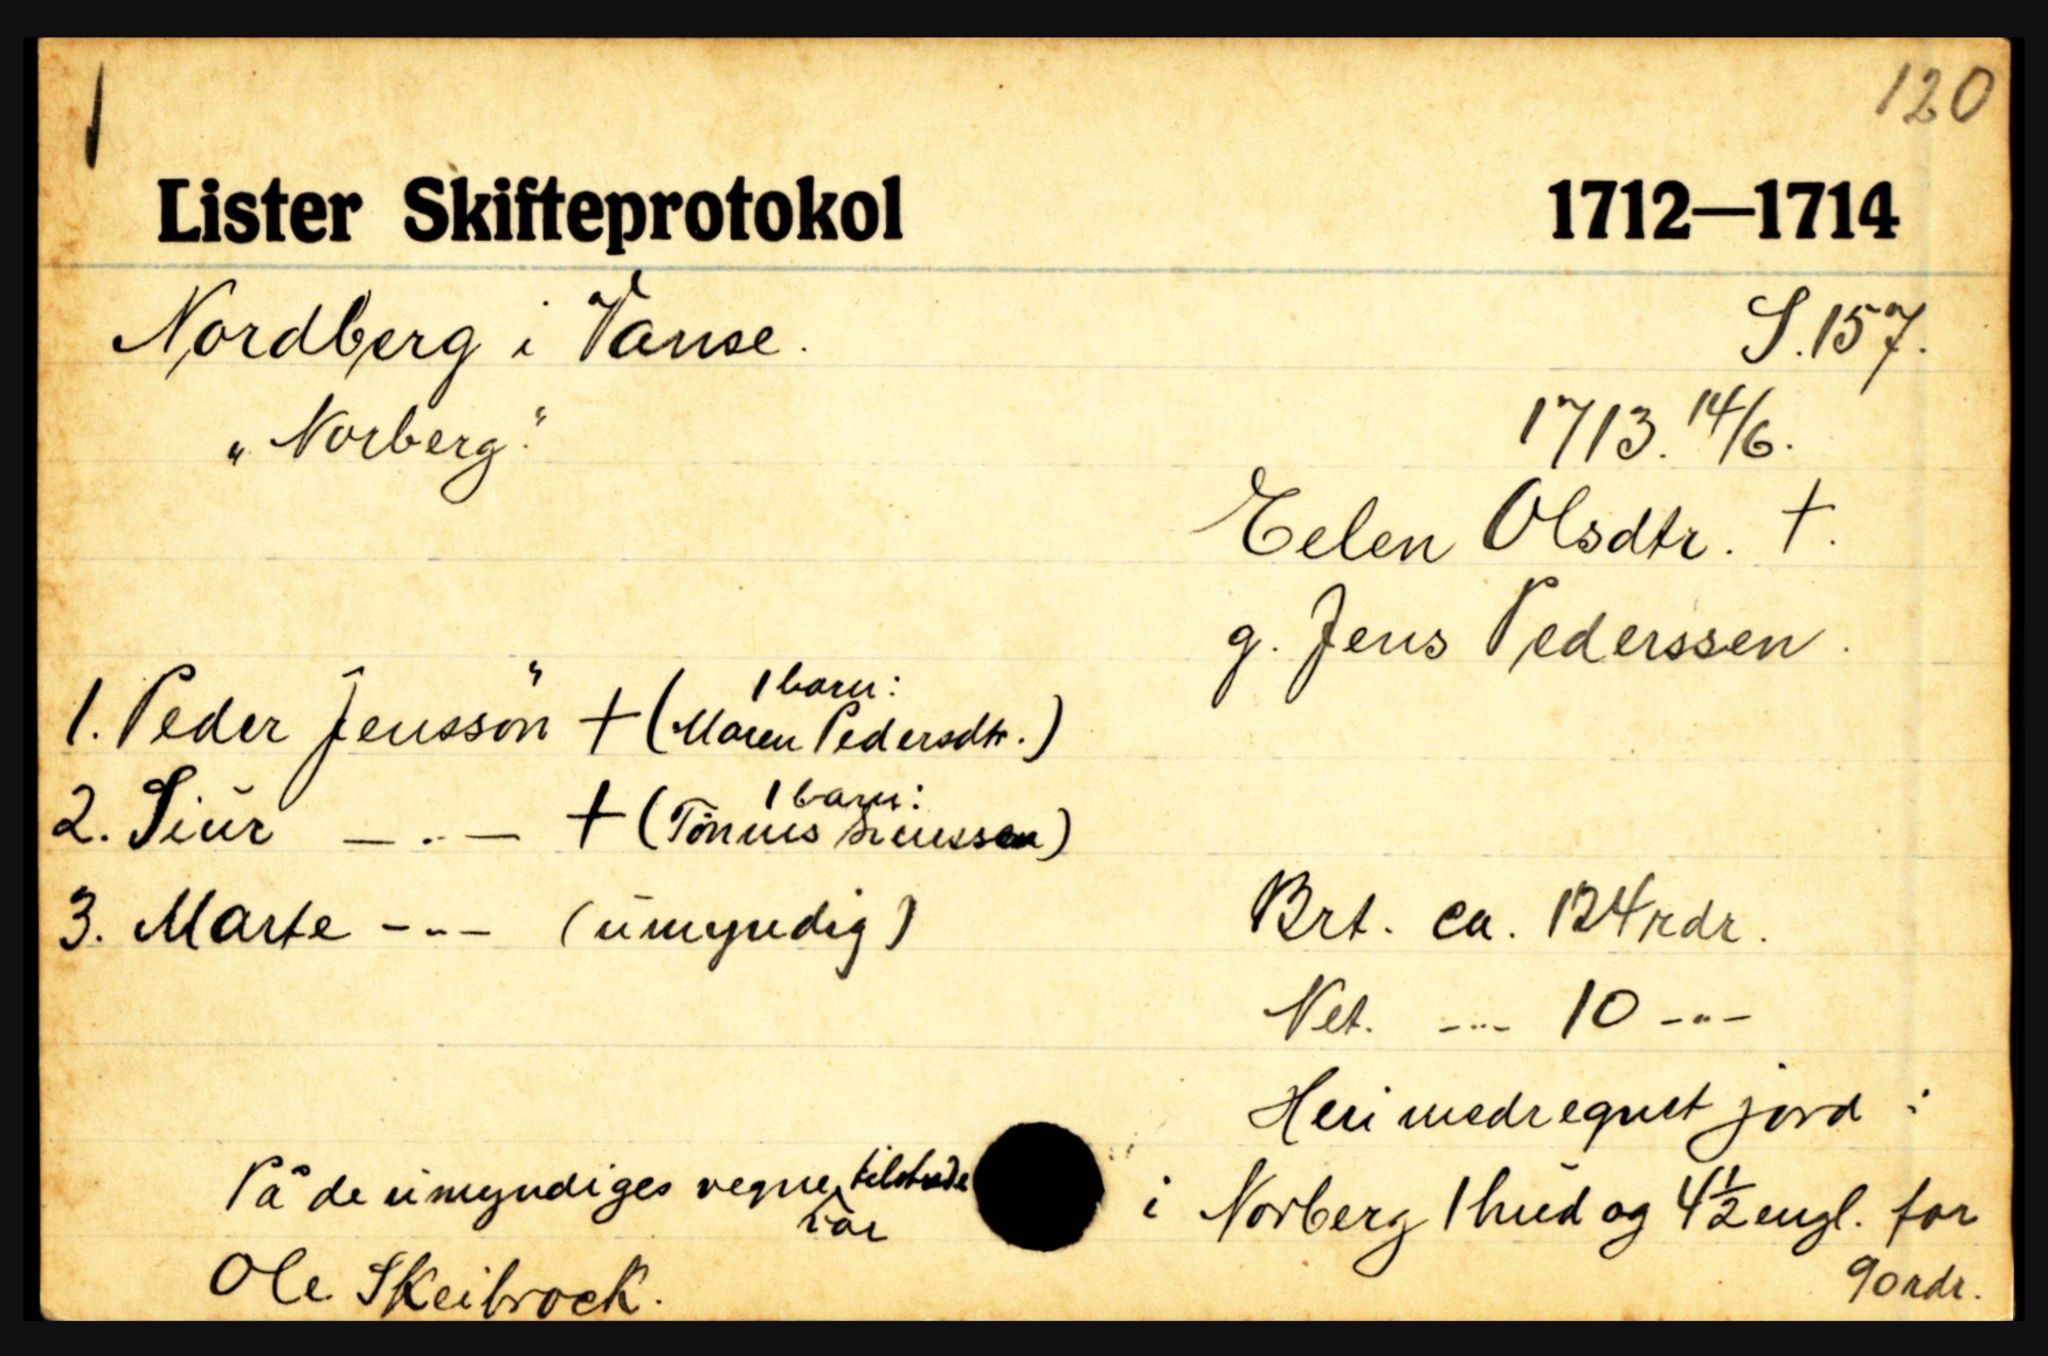 1
120
Lister Skifteprotokol 1712—1714
Nordberg i Vanse. S. 157.
„Norberg." 1713. 14/6.
Eelen Olsdtr. †.
g. Jens Pederssen.
1 barn:
1. Peder Jenssön † (Maren Pedersdtr.)
1 barn:
2. Siur — " — † (Tönnes Siurssen)
3. Marte - " - (umyndig) Brt. ca. 124 rdr.
Net. - " - 10 - " -
Heri medregnet jord :
På de umyndiges vegne tilstede i Norberg 1 hud og 4½ engl. for
var 90 rdr.
Ole Skeibrock.